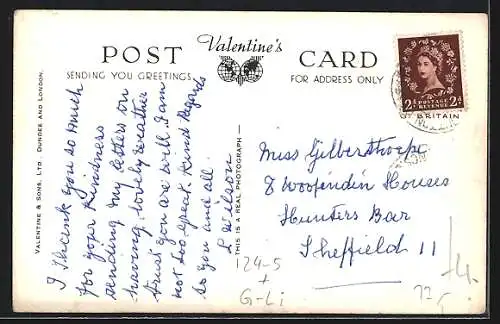 POST Valentine's CARD
SENDING YOU GREETINGS
FOR ADDRESS ONLY
VALENTINE & SONS, LTD. DUNDEE AND LONDON.
I Thank you so much
for your Kindness
sending my letters on
having lovely weather
trust you are well. I am
not too great. Kind Regards
to you and all.
L Wilson
THIS IS A REAL PHOTOGRAPH
2D POSTAGE REVENUE 2D
BRITAIN
Miss Gilberthorpe
8 Woofindin Houses
Hunters Bar
Sheffield 11
24-5
+
G-Li